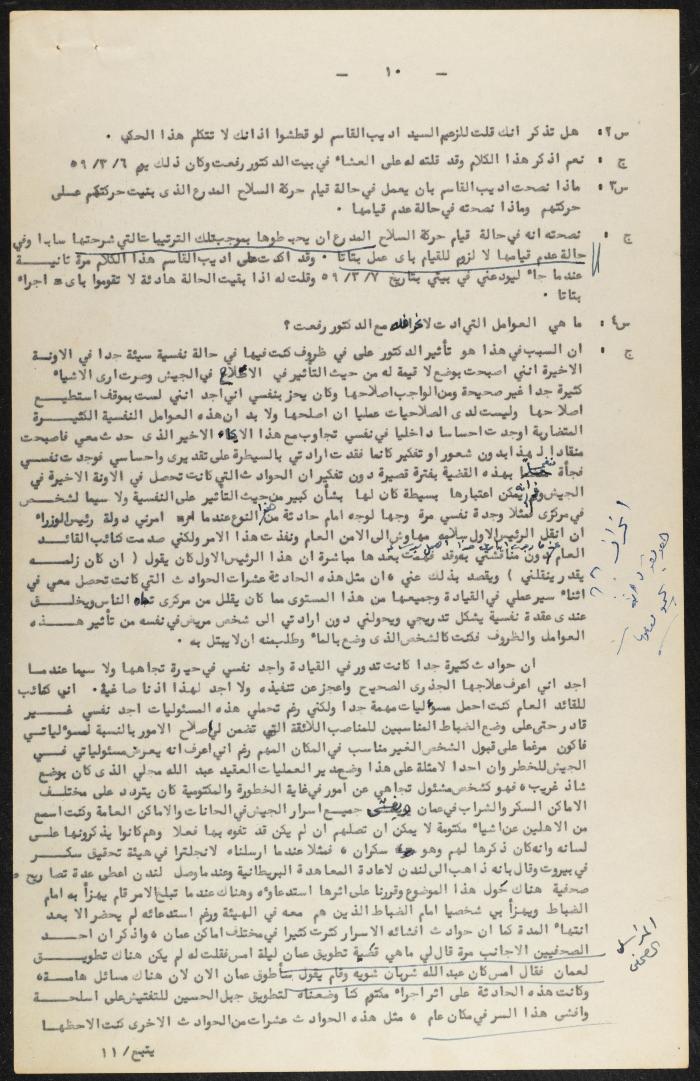 — ١٠ —
س٢: هل تذكر انك قلت للزعيم السيد اديب القاسم لو قطشوا اذانك لا تتكلم هذا الحكي .
ج : نعم اذكر هذا الكلام وقد قلته له على العشاء في بيت الدكتور رفعت وكان ذلك يوم ٥٩/٣/٦
س٣: ماذا نصحت اديب القاسم بان يعمل في حالة قيام حركة السلاح المدرع الذى بنيت حركتكم عــلى
حركتهم وماذا نصحته في حالة عدم قيامها .
ج : نصحته انه في حالة قيام حركة السلاح المدرع ان يحبطوها بموجب تلك الترتيبات التي شرحتها سابقا وفي
حالة عدم قيامها لا لزوم للقيام باى عمل بتاتا . وقد اكدت على اديب القاسم هذا الكلام مرة ثانيــــة
عندما جاء ليودعني في بيتي بتاريخ ٥٩/٣/٧ وقلت له اذا بقيت الحالة هادئة لا تقوموا باى اجراء
بتاتا .
س٤: ما هي العوامل التي ادت مع الدكتور رفعت؟
ج : ان السبب في هذا هو تأثير الدكتور على في ظروف كنت فيها في حالة نفسية سيئة جدا في الاونة
الاخيرة انني اصبحت بوضع لا قيمة له من حيث التأثير في الاصلاح في الجيش وصرت ارى الاشياء
كثيرة جدا غير صحيحة ومن الواجب اصلاحها وكان يحز بنفسي اني اجد انني لست بموقف استطيـــع
اصلاحها وليست لدى الصلاحيات عمليا ان اصلحها ولا بد ان هذه العوامل النفسية الكثيـــرة
المتضاربة اوجدت احساسا داخليا في نفسي تجاوب مع هذا الايحاء الاخير الذى حدث معي فاصبحت
منقادا لهذا بدون شعور او تفكير كانما فقدت ارادتي بالسيطرة على تقديرى واحساسي فوجدت نفسي
فجأة بهذه القضية بفترة قصيرة دون تفكير ان الحوادث التي كانت تحصل في الاونة الاخيرة في
الجيش يمكن اعتبارها بسيطة كان لها بشأن كبير من حيث التأثير على النفسية ولا سيما لشخــص
في مركزى فمثلا وجدة نفسي مرة وجها لوجه امام حادثة من هذا النوع عندما امرني دولة رئيس الوزراء
ان انقل الرئيس الاول سلامه مهاوش الى الامن العام ونفذت هذا الامر ولكني صدمت بكتاب القائــد
العام بدون مناقشتي بعدها مباشرة ان هذا الرئيس الاول كان يقول ( ان كان زلمـــه
يقدر ينقلني ) ويقصد بذلك عني ٠ ان مثل هذه الحادثة عشرات الحوادث التي كانت تحصل معي في
اثناء سير عملي في القيادة وجميعها من هذا المستوى مما كان يقلل من مركزى تجاه الناس ويخلــق
عندى عقدة نفسية بشكل تدريجي ويحولني دون ارادتي الى شخص مريض في نفسه من تأثير هـــذه
العوامل والظروف فكنت كالشخص الذى وضع بالماء وطلب منه ان لا يبتل به .
ان حوادث كثيرة جدا كانت تدور في القيادة واجد نفسي في حيرة تجاهها ولا سيما عندمــا
اجد اني اعرف علاجها الجذرى الصحيح واعجز عن تنفيذه ولا اجد لهذا اذنا صاغية . اني كنائب
للقائد العام كنت احمل مسؤليات مهمة جدا ولكني رغم تحملي هذه المسئوليات اجد نفسي غـــير
قادر حتى على وضع الضباط المناسبين للمناصب اللائقة التي تضمن لي اصلاح الامور بالنسبة لمسؤلياتي
فاكون مرغما على قبول الشخص الغير مناسب في المكان المهم رغم اني اعرف انه يعرض مسئولياتي فــي
الجيش للخطر وان احدا لامثلة على هذا وضع مدير العمليات العقيد عبد الله مجلي الذى كان بوضع
شاذ غريب ٠ فهو كشخص مسئول تجاهي عن امور في غاية الخطورة والمكتومية كان يتردد على مختلــف
الاماكن السكر والشراب في عمان ويفشي جميع اسرار الجيش في الحانات والاماكن العامة وكنت اسمع
من الاهلين عن اشياء مكتومة لا يمكن ان تصلهم ان لم يكن قد تفوه بها فعلا وهم كانوا يذكرونها علــى
لسانه وانه كان ذكرها لهم وهو سكران ٠ فمثلا عندما ارسلناه لانجلترا في هيئة تحقيق سكــر
في بيروت وقال بانه ذاهب الى لندن لاعادة المعاهدة البريطانية وعندما وصل لندن اعطى عدة تصاريح
صحفية هناك حول هذا الموضوع وقررنا على اثرها استدعاؤه وهناك عندما تبلغ الامر قام يهزأ به امام
الضباط ويهزأ بي شخصيا امام الضباط الذين هم معه في الهيئة ورغم استدعائه لم يحضر الا بعد
انتهاء المدة كما ان حوادث افشائه الاسرار كثرت كثيرا في مختلف اماكن عمان ٠ واذكر ان احــد
الصحفيين الاجانب مرة قال لي ماهي قضية تطويق عمان ليلة امس فقلت له لم يكن هناك تطويــق
لعمان فقال امس كان عبد الله شربان شويه وقام يقول سأطوق عمان الان لان هناك مسائل هامــة
وكانت هذه الحادثة على اثر اجراء مكتوم كنا وضعناه لتطويق جبل الحسين للتفتيش على اسلحــة
وافشى هذا السر في مكان عام ٠ مثل هذه الحوادث عشرات من الحوادث الاخرى كنت الاحظها
يتبع/١١